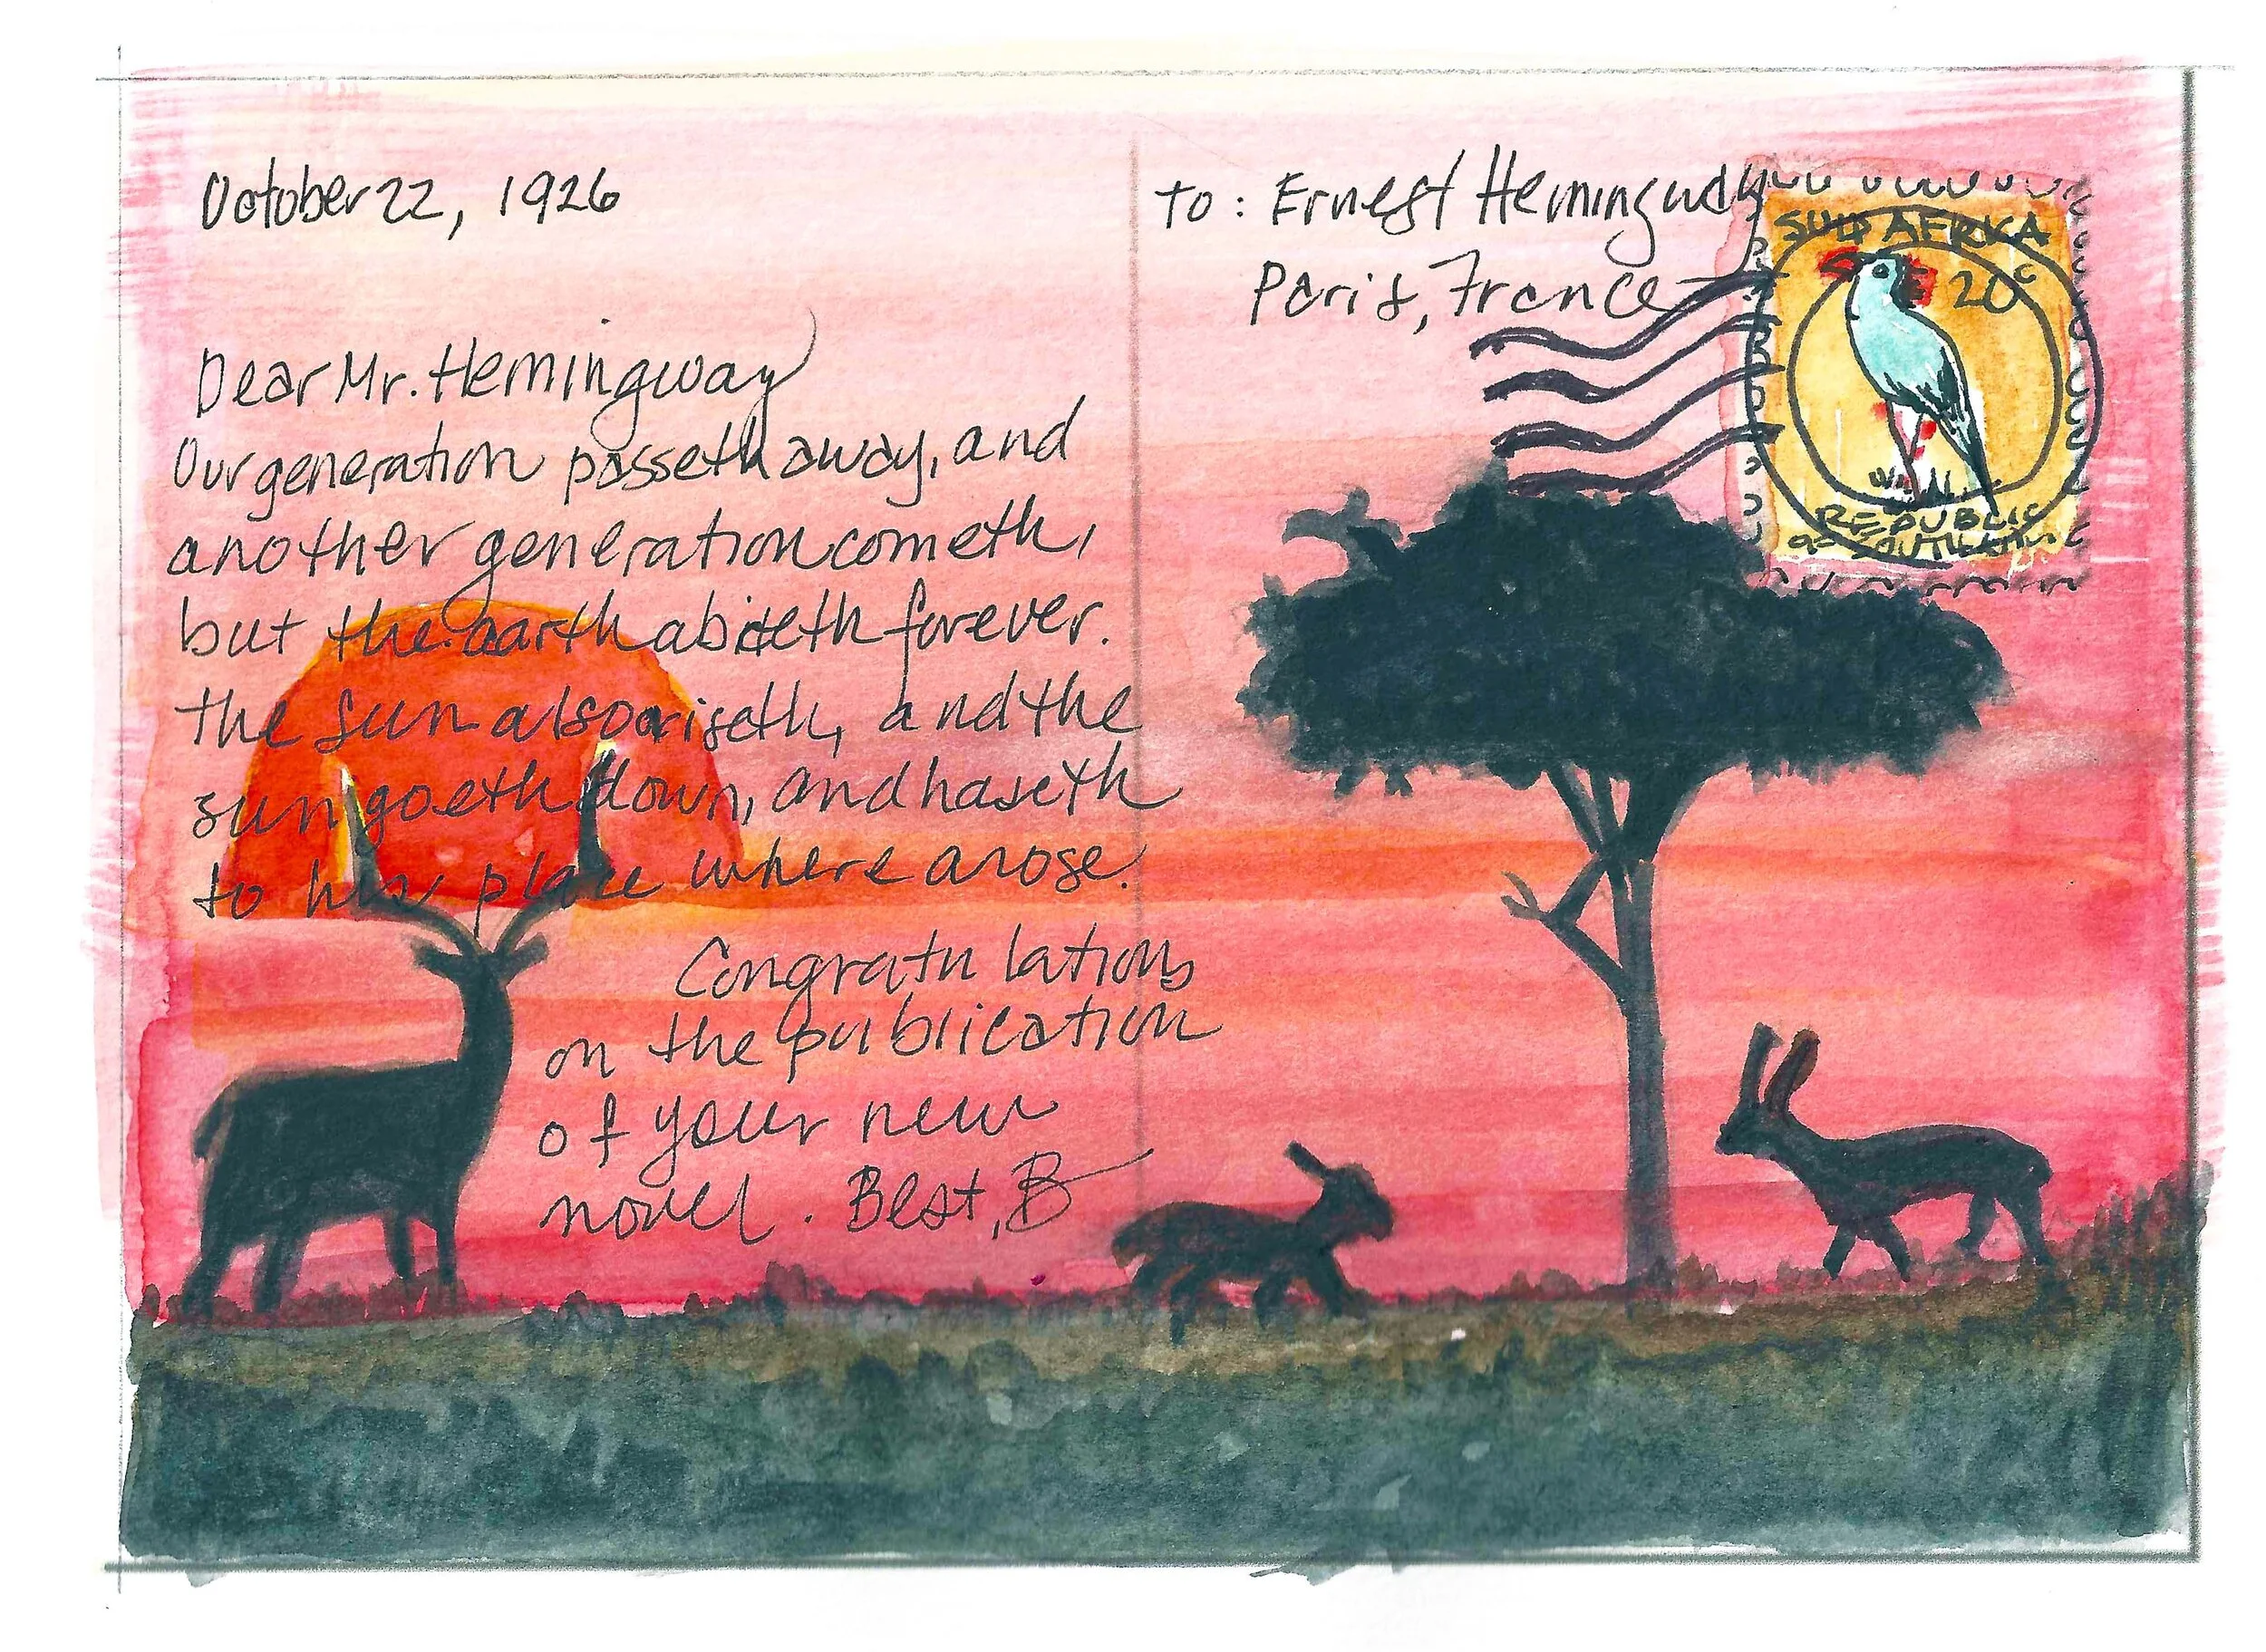 October 22, 1926
Dear Mr. Hemingway
Our generation passeth away, and
another generation cometh,
but the earth abideth forever.
the sun also ariseth, and the
sun goeth down, and haseth
to his place where arose.
Congratulations
on the publication
of your new
novel. Best, B
to: Ernest Hemingway
Paris, France
SUID AFRIKA
20c
REPUBLIC
OF SOUTH